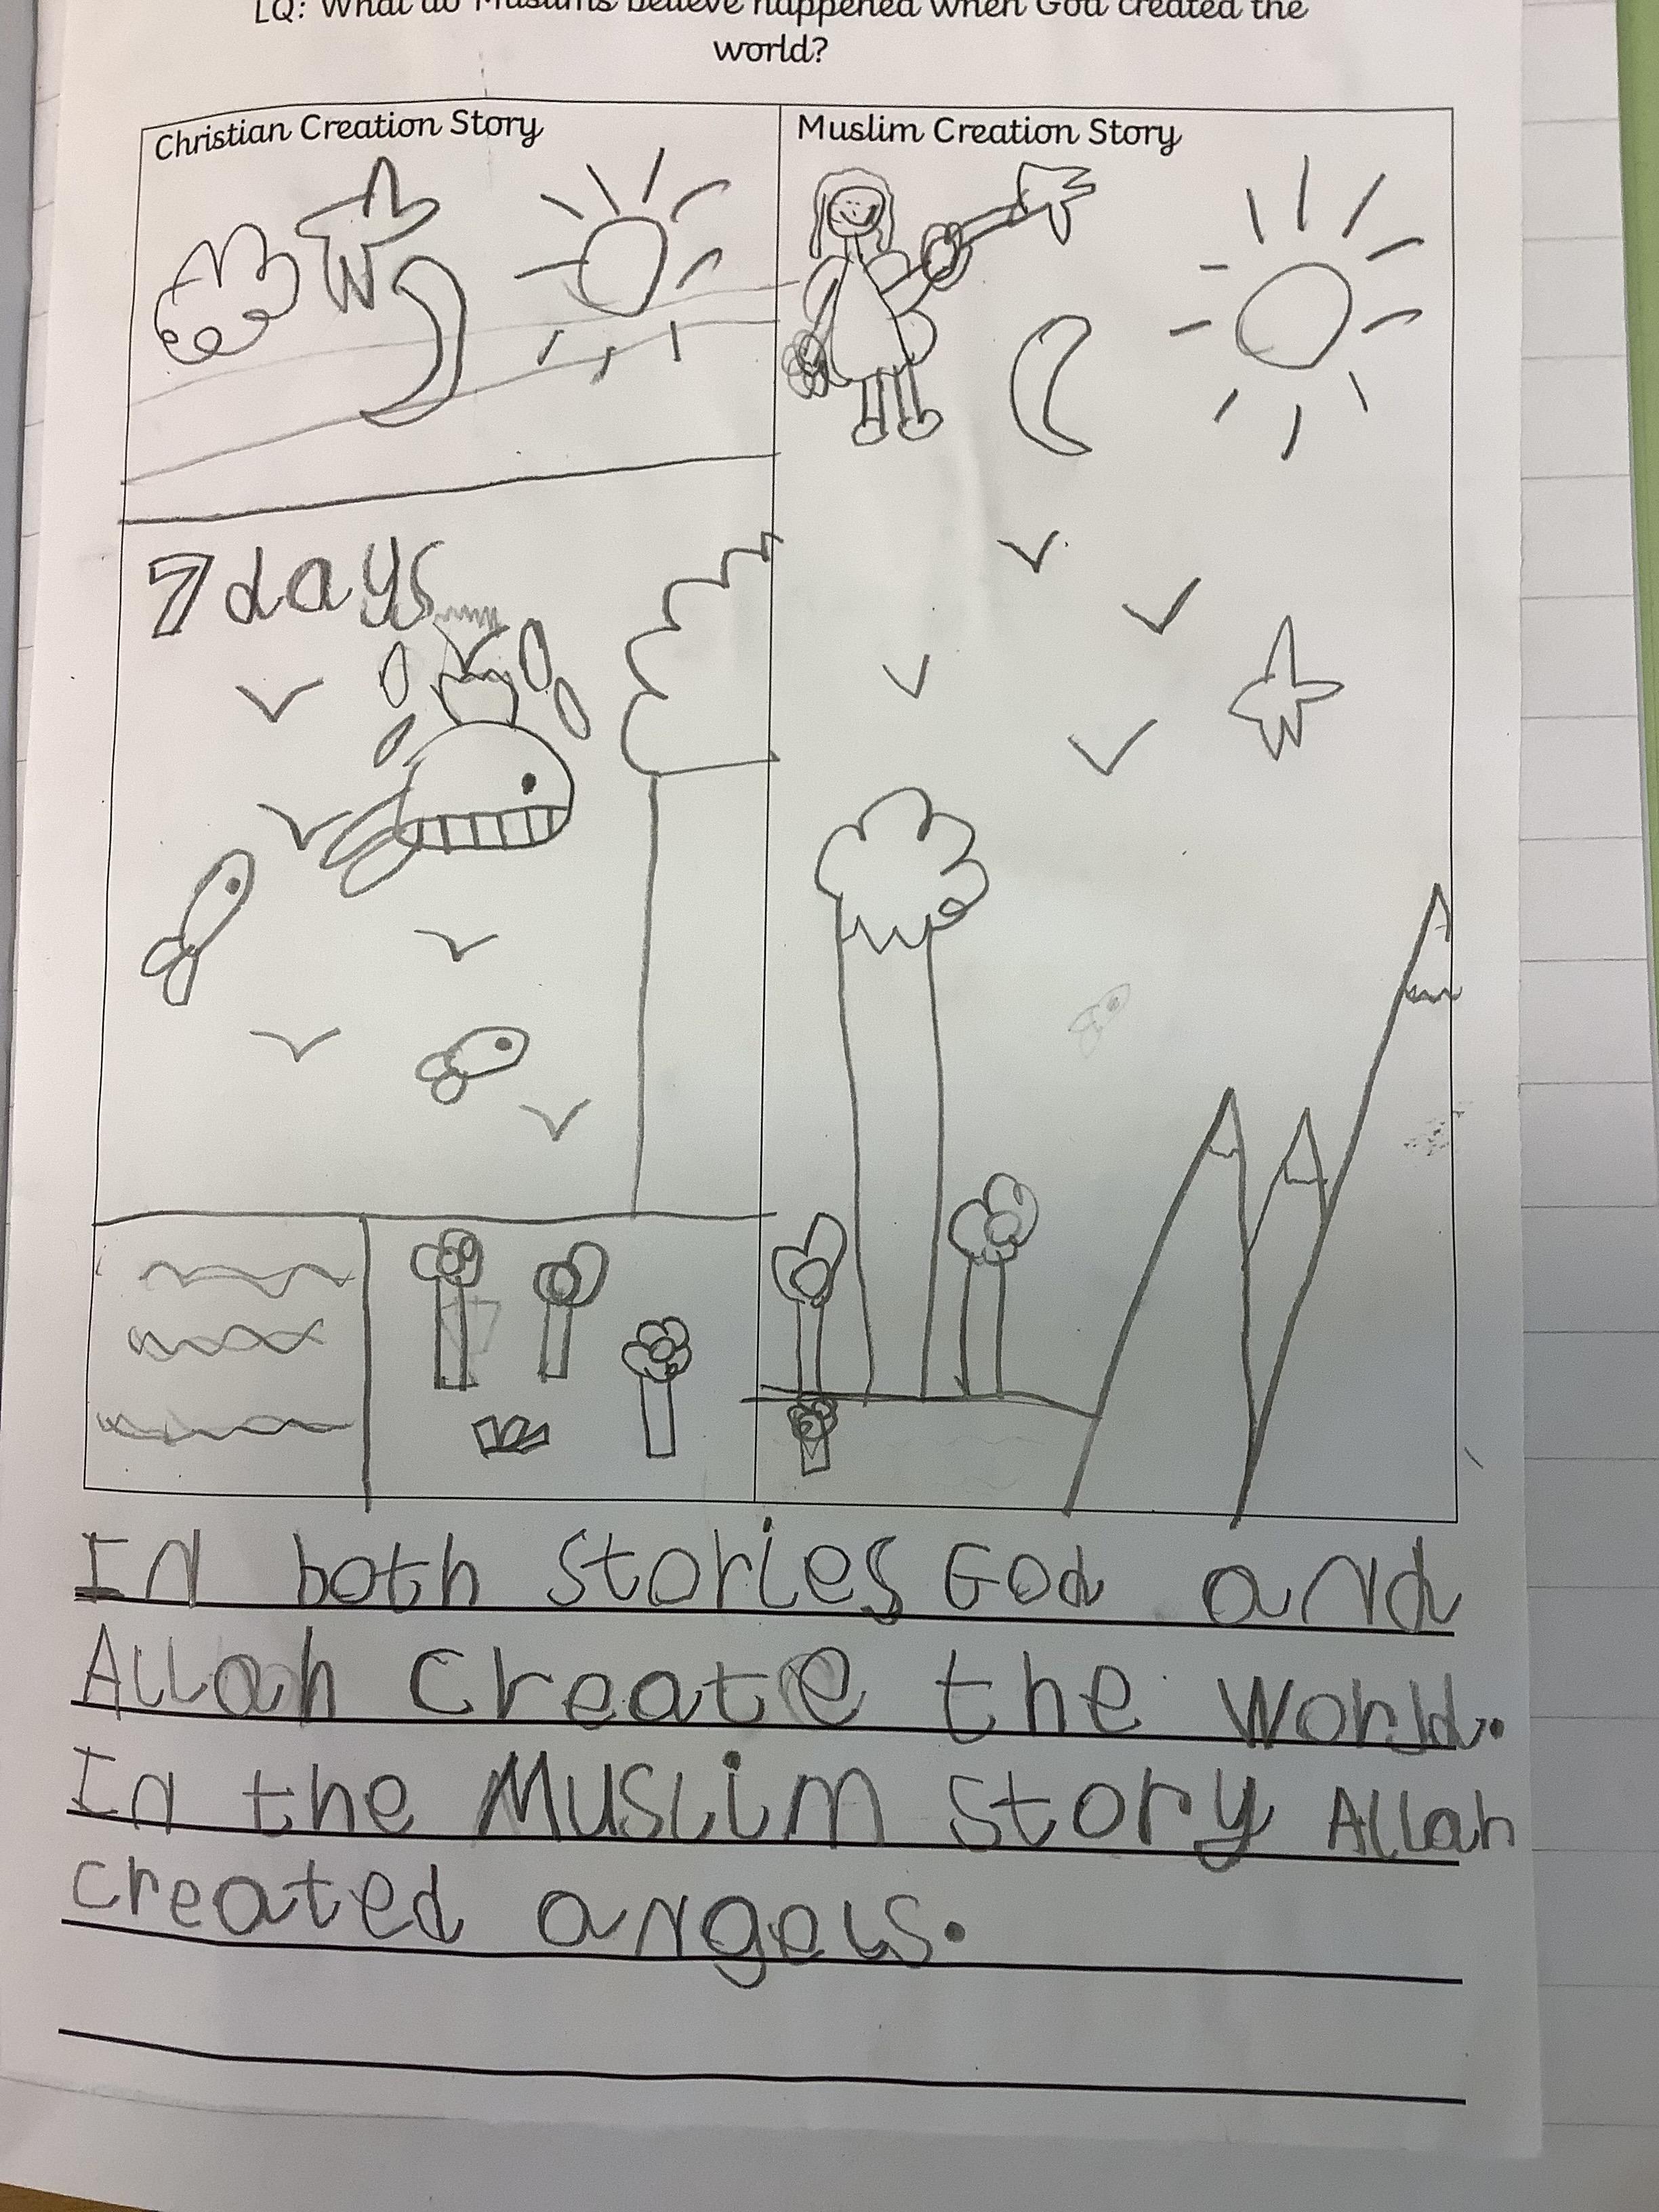 LQ: What do Muslims believe happened when God created the
world?
Christian Creation Story
Muslim Creation Story
7 days
In both stories God and
Allah create the world.
In the Muslim story Allah
created angels.